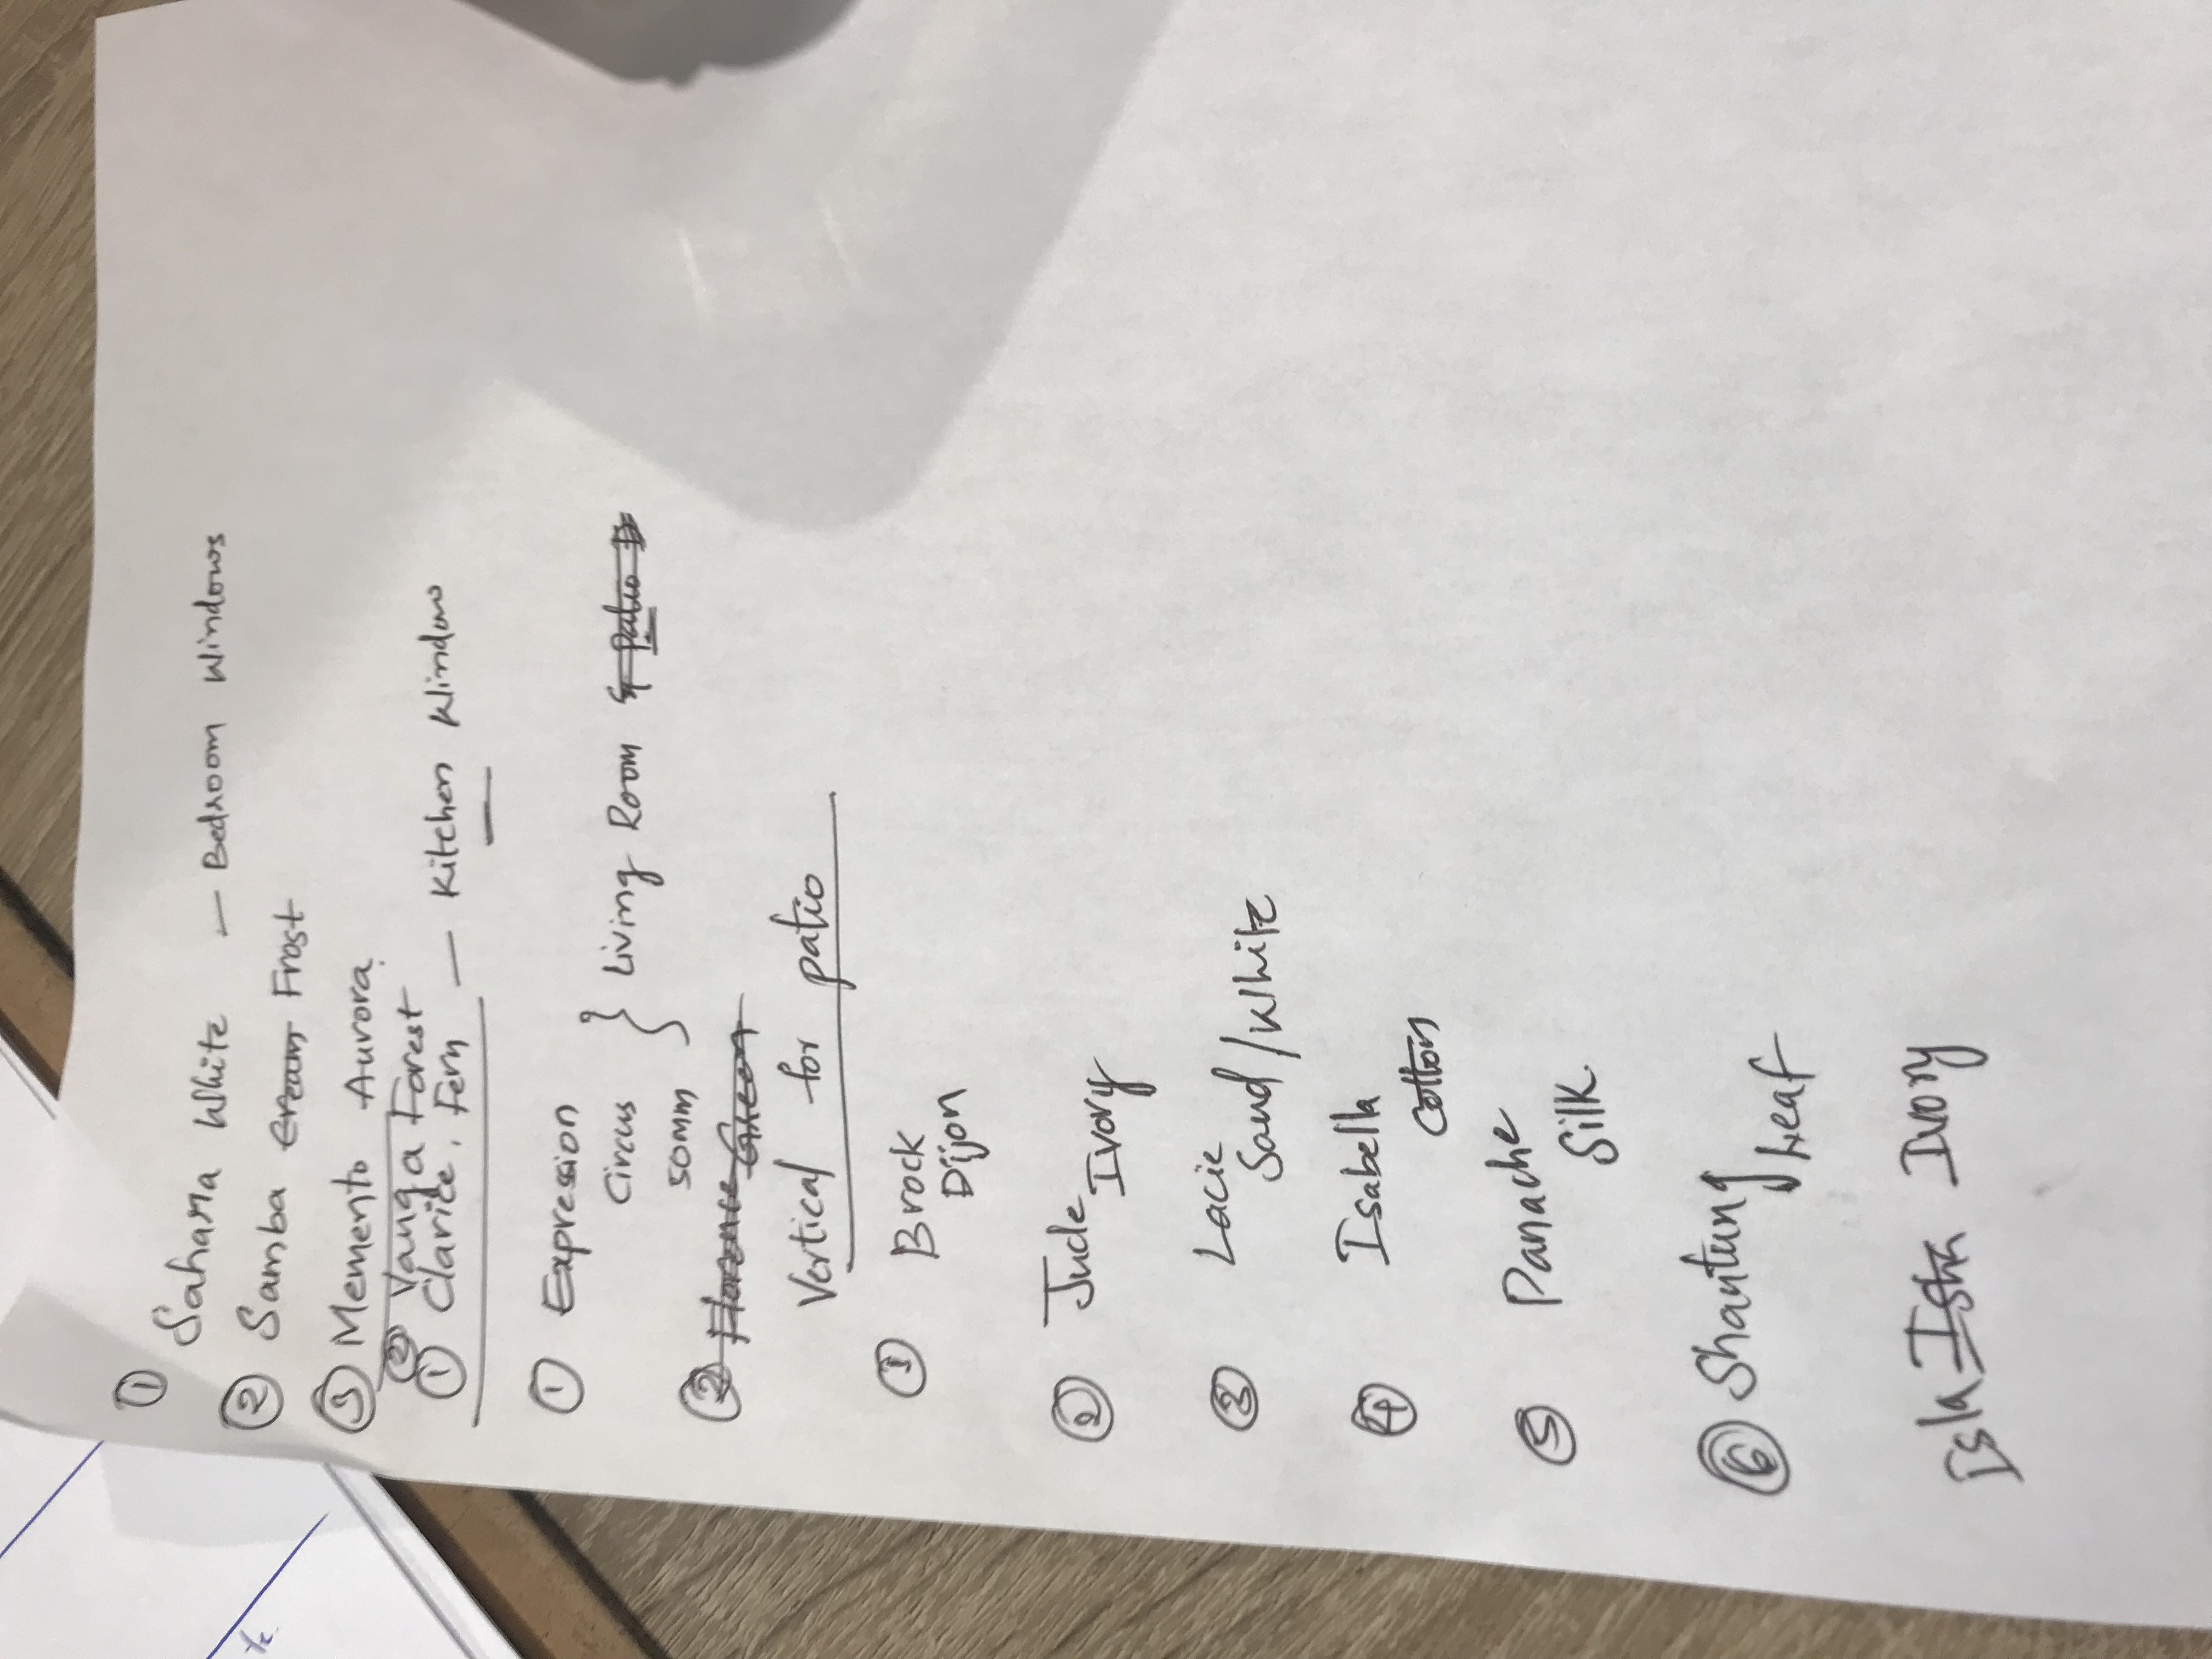 ① Sahara White — Bedroom Windows
② Samba Cream Frost
③ Memento Aurora
② Vanga Forest
① Clarice, Fern — Kitchen Window
① Expression
Circus } Living Room & patio
50mm
② Florence Green
Vertical for patio
① Brock
Dijon
② Jude
Ivory
③ Lacie
Sand/White
④ Isabella
Cotton
⑤ Panache
Silk
⑥ Shantung
Leaf
Isla Isha Ivory